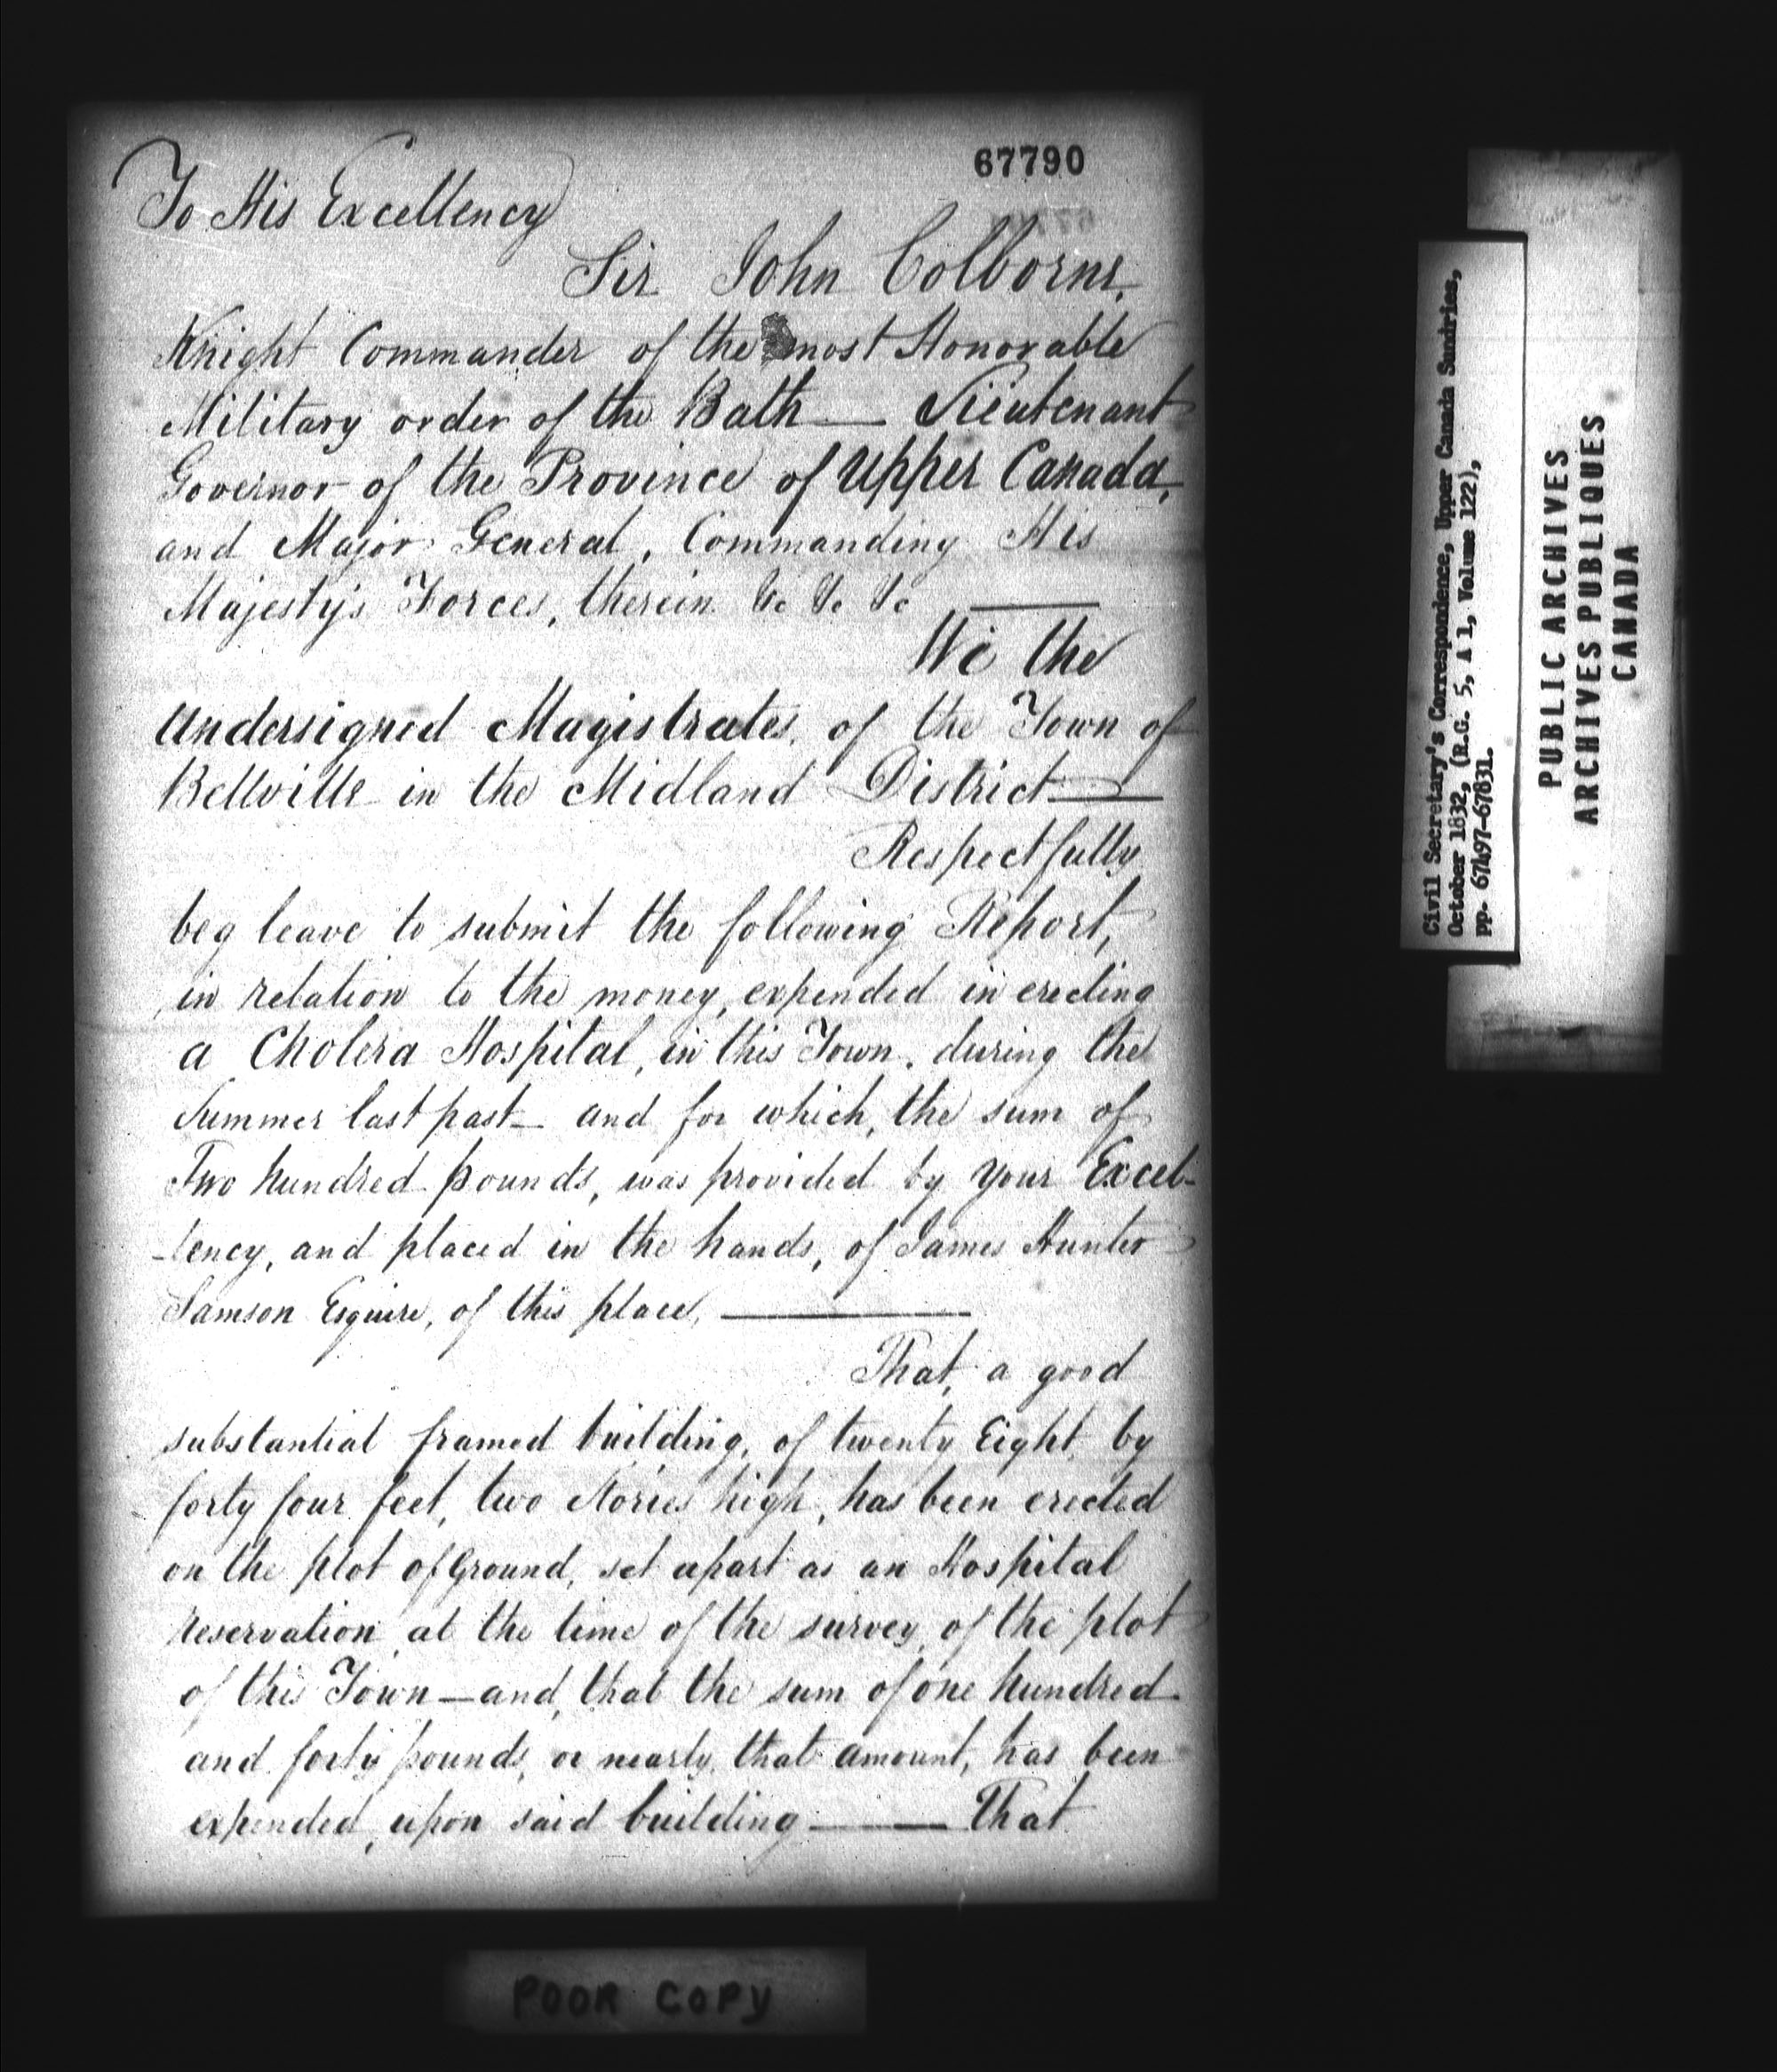 67790
To His Excellency
Sir John Colborne,
Knight Commander of the most Honorable
Military order of the Bath — Lieutenant
Governor of the Province of Upper Canada,
and Major General, Commanding His
Majesty's Forces, therein &c &c &c —
We the
Undersigned Magistrates, of the Town of
Bellville in the Midland District —
Respectfully
beg leave to submit the following Report,
in relation to the money, expended in erecting
a Cholera Hospital, in this Town, during the
Summer last past — and for which, the sum of
Two hundred pounds, was provided by your Excel-
-lency, and placed in the hands, of James Hunter
Samson Esquire, of this place, —
That, a good
substantial framed building, of twenty Eight by
forty four feet, two stories high, has been erected
on the plot of Ground, set apart as an Hospital
reservation at the time of the survey, of the plot
of this Town — and, that the sum of one hundred
and forty pounds, or nearly that amount, has been
expended, upon said building — That
POOR COPY
Civil Secretary's Correspondence, Upper Canada Sundries,
October 1832, (R.G. 5, A 1, Volume 122),
pp. 67497-67831.
PUBLIC ARCHIVES
ARCHIVES PUBLIQUES
CANADA